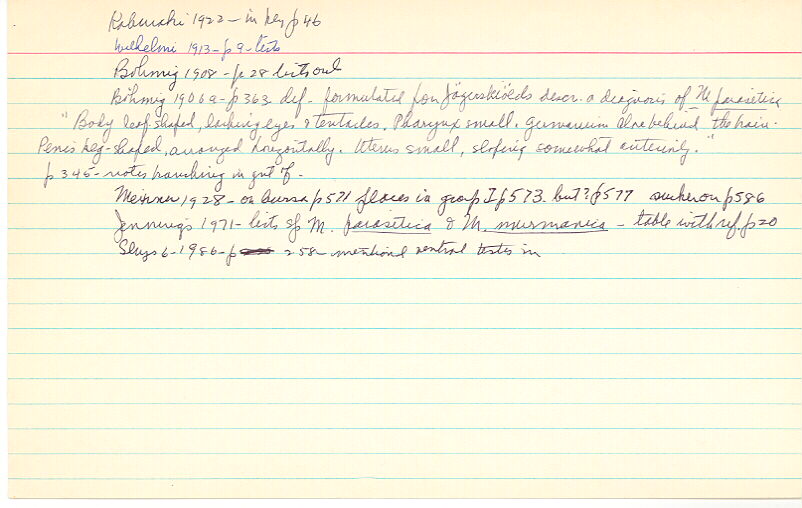 Kaburaki 1922 - in key p 46
Wilhelmi 1913 - p 9 - lists
Böhmig 1908 - p 28 lists only
Böhmig 1906a - p 363 def. formulated from Jägerskiölds descr. a diagnosis of M. parasitica
"Body leaf-shaped, lacking eyes & tentacles. Pharynx small. Germarium close behind the brain.
Penis peg-shaped, arranged horizontally. Uterus small, sloping somewhat anteriorly."
p 345 - notes branching in gut of -
Meixner 1928 - on bursa p 571 places in group I p 573. but? p 577 sucker on p 586
Jennings 1971 - lists sp M. parasitica & M. murmanica - table with ref. p 20
Sluys 6-1986 - p 258 - mentions ventral testes in